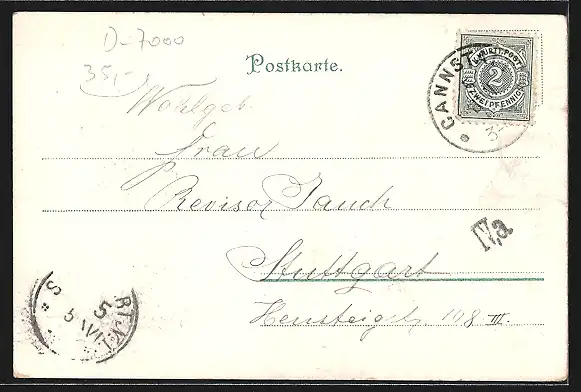 D-7000
35,-
Postkarte.
K.WÜRTT.POST
2
ZWEI PFENNIG
CANNST
3-
Wohlgeb.
Frau
Revisor Jauch
IVa
Stuttgart
Heusteigstr 108 III.
RT. N.1.
5
VI 9
S